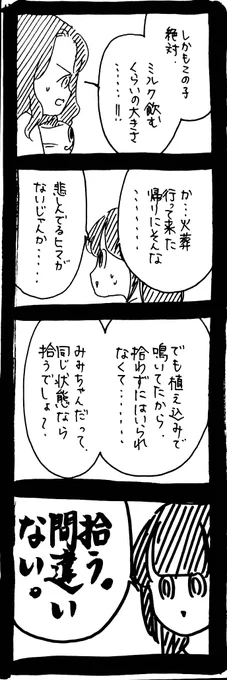 しかもこの子
絶対．
ミルク飲む
くらいの大きさ
‥‥‥!!
か‥火葬
行って来た
帰りにそんな
‥‥‥‥
悲しんでるヒマが
ないじゃんか‥‥
でも植え込みで
鳴いてたから．
拾わずにはいられ
なくて‥‥‥‥
みみちゃんだって、
同じ状態なら
拾うでしょ〜、
拾う。
間違い
ない。